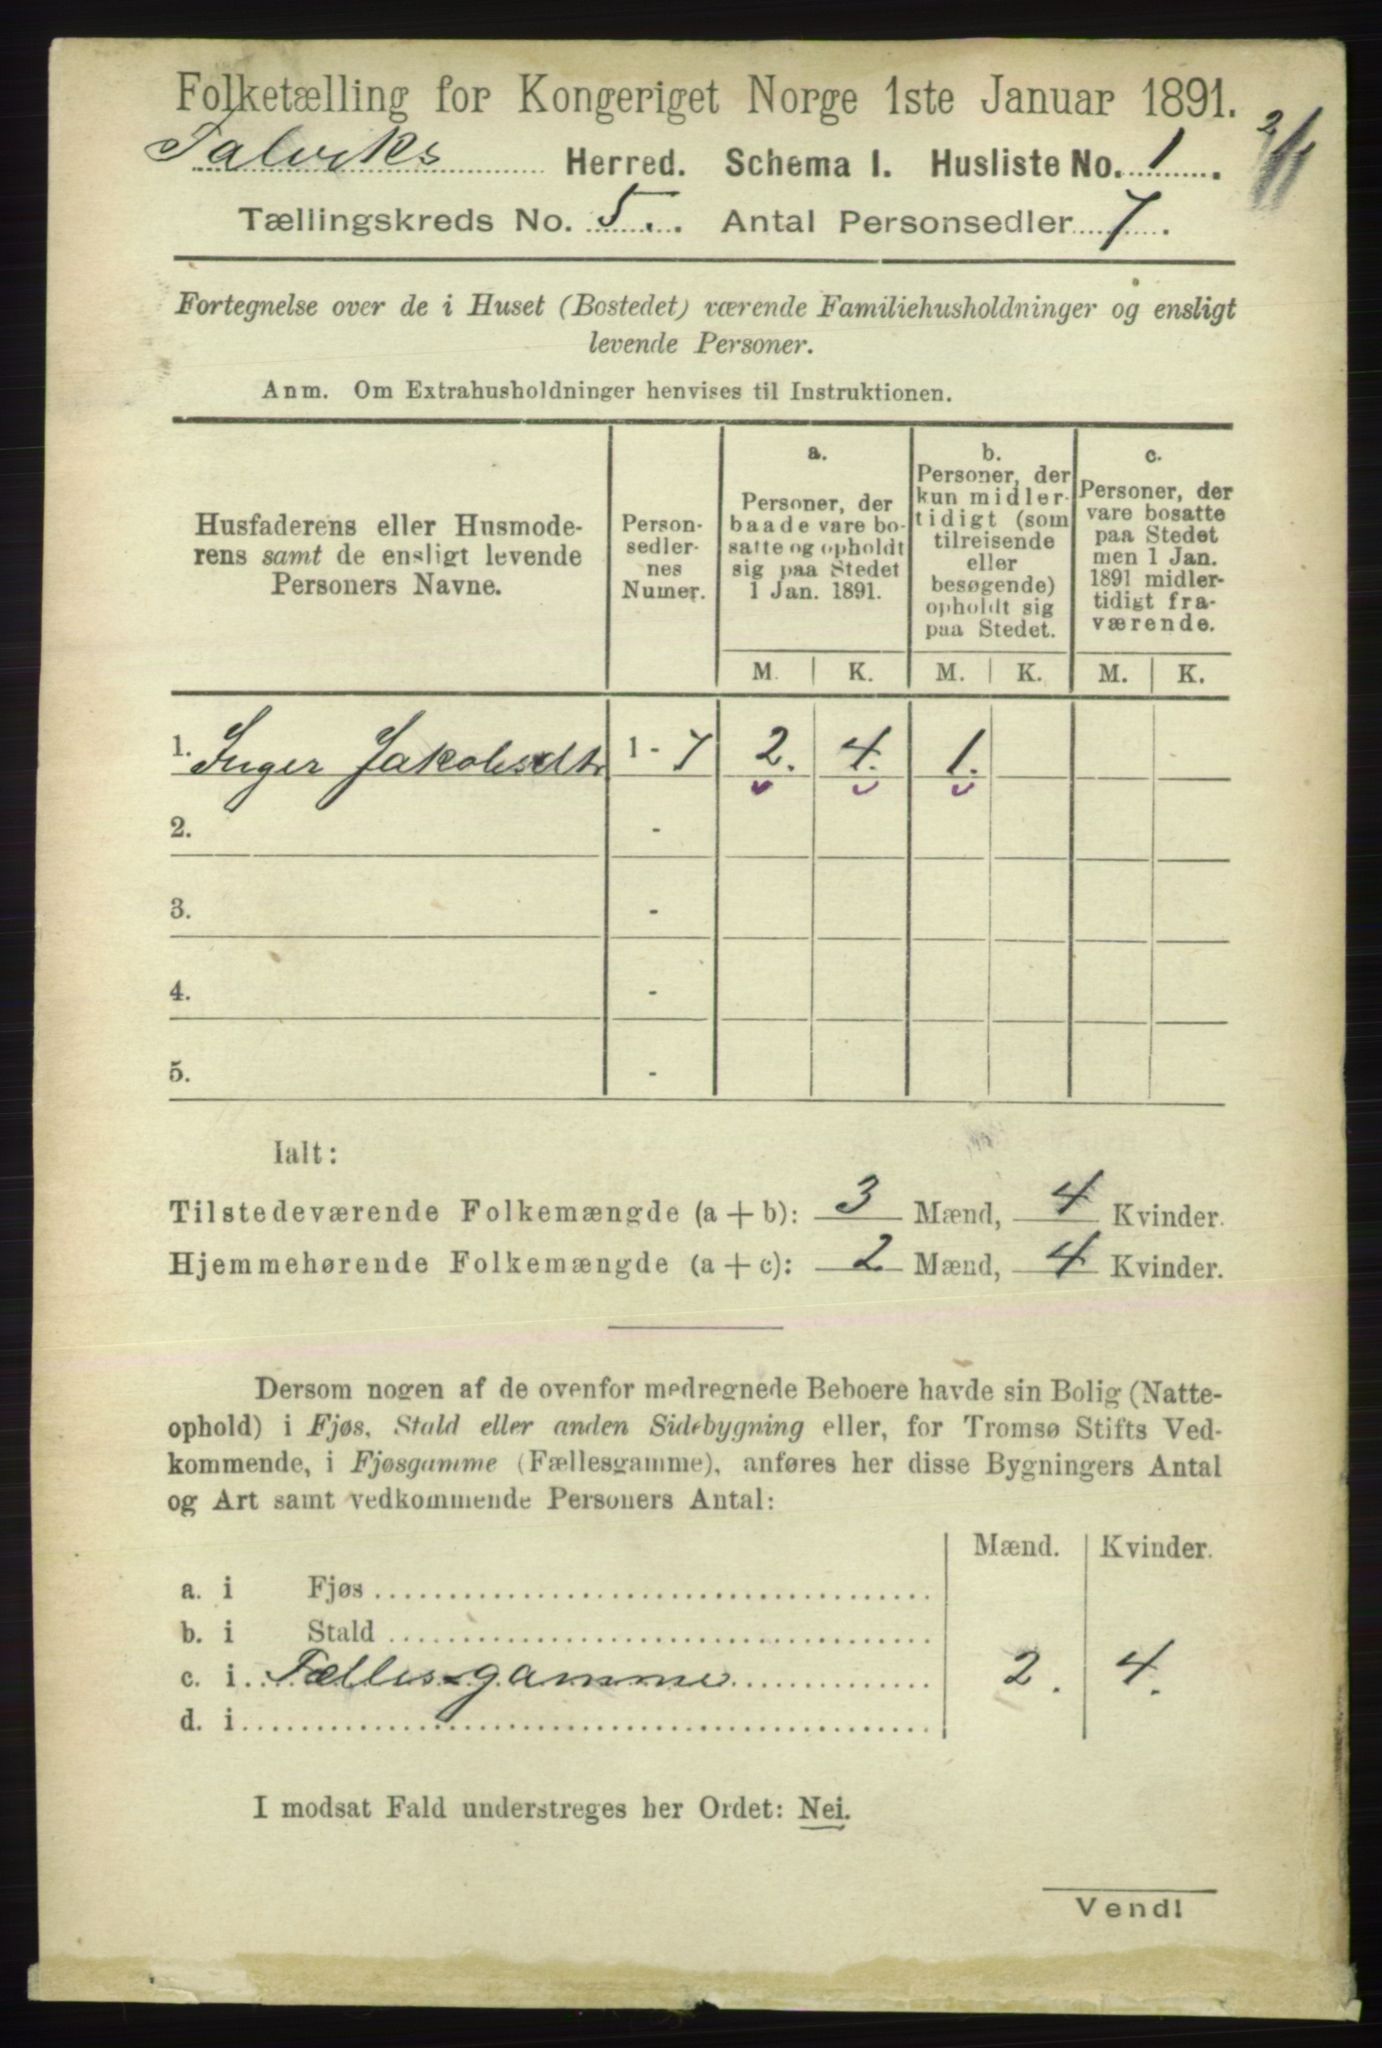 Folketælling for Kongeriget Norge 1ste Januar 1891.
Talviks Herred. Schema I. Husliste No. 1.
2/1
Tællingskreds No. 5. Antal Personsedler 7.
Fortegnelse over de i Huset (Bostedet) værende Familiehusholdninger og ensligt
levende Personer.
Anm. Om Extrahusholdninger henvises til Instruktionen.
Husfaderens eller Husmode-
rens samt de ensligt levende
Personers Navne.
Person-
sedler-
nes
Numer.
a.
Personer, der
baade vare bo-
satte og opholdt
sig paa Stedet
1 Jan. 1891.
b.
Personer, der
kun midler-
tidigt (som
tilreisende
eller
besøgende)
opholdt sig
paa Stedet.
c.
Personer, der
vare bosatte
paa Stedet
men 1 Jan.
1891 midler-
tidigt fra-
værende.
M. K. M. K. M. K.
1. Inger Jakobsdtr 1 - 7 2. 4. 1.
2. -
3. -
4. -
5. -
Ialt:
Tilstedeværende Folkemængde (a + b): 3 Mænd, 4 Kvinder.
Hjemmehørende Folkemængde (a + c): 2 Mænd, 4 Kvinder.
Dersom nogen af de ovenfor medregnede Beboere havde sin Bolig (Natte-
ophold) i Fjøs, Stald eller anden Sidebygning eller, for Tromsø Stifts Ved-
kommende, i Fjøsgamme (Fællesgamme), anføres her disse Bygningers Antal
og Art samt vedkommende Personers Antal:
Mænd. Kvinder.
a. i Fjøs
b. i Stald
c. i Fælles-gamme 2. 4.
d. i
I modsat Fald understreges her Ordet: Nei.
Vendl